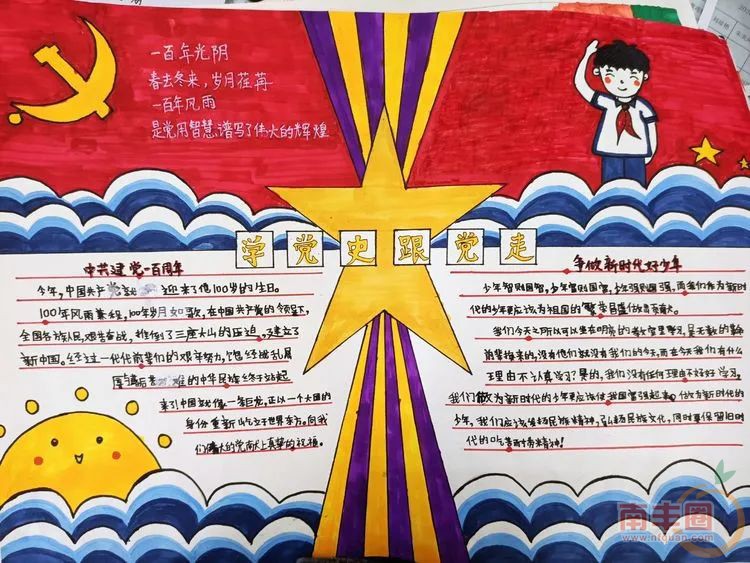 一百年光阴
春去冬来，岁月荏苒
一百年风雨
是党用智慧谱写了伟大的辉煌
学党史跟党走
中共建党一百周年
今年，中国共产党 迎来了他100岁的生日。
100年风雨兼程，100年岁月如歌，在中国共产党的领导下，
全国各族人民，艰苦奋战，推倒了三座大山的压迫，建立了
新中国。经过一代代前辈们的艰辛努力，饱经战乱
的中华民族终于站起
来引中国 像一条巨龙，正以一个大国的
身份重新屹立于世界东方。向我
们伟大的党献上真挚的祝福。
争做新时代好少年
少年智则国智，少年富则国富，少年强则国强，而我们作为新时
代的少年更应该为祖国的繁荣昌盛做出贡献。
我们今天之所以可以坐在明亮的教室里学习，是无数的革命
前辈换来的，没有他们就没有我们的今天，而在今天我们有什么
理由不认真学习？是的，我们没有任何理由不好好学习，
我们做为新时代的少年更应该使我国富强起来。做为新时代的
少年，我们应该发扬民族精神，弘扬民族文化，同时要保留旧时
代的吃苦耐劳精神！
南丰圈
www.nfquan.com